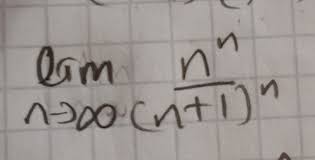 lim n^n
n→∞ (n+1)^n